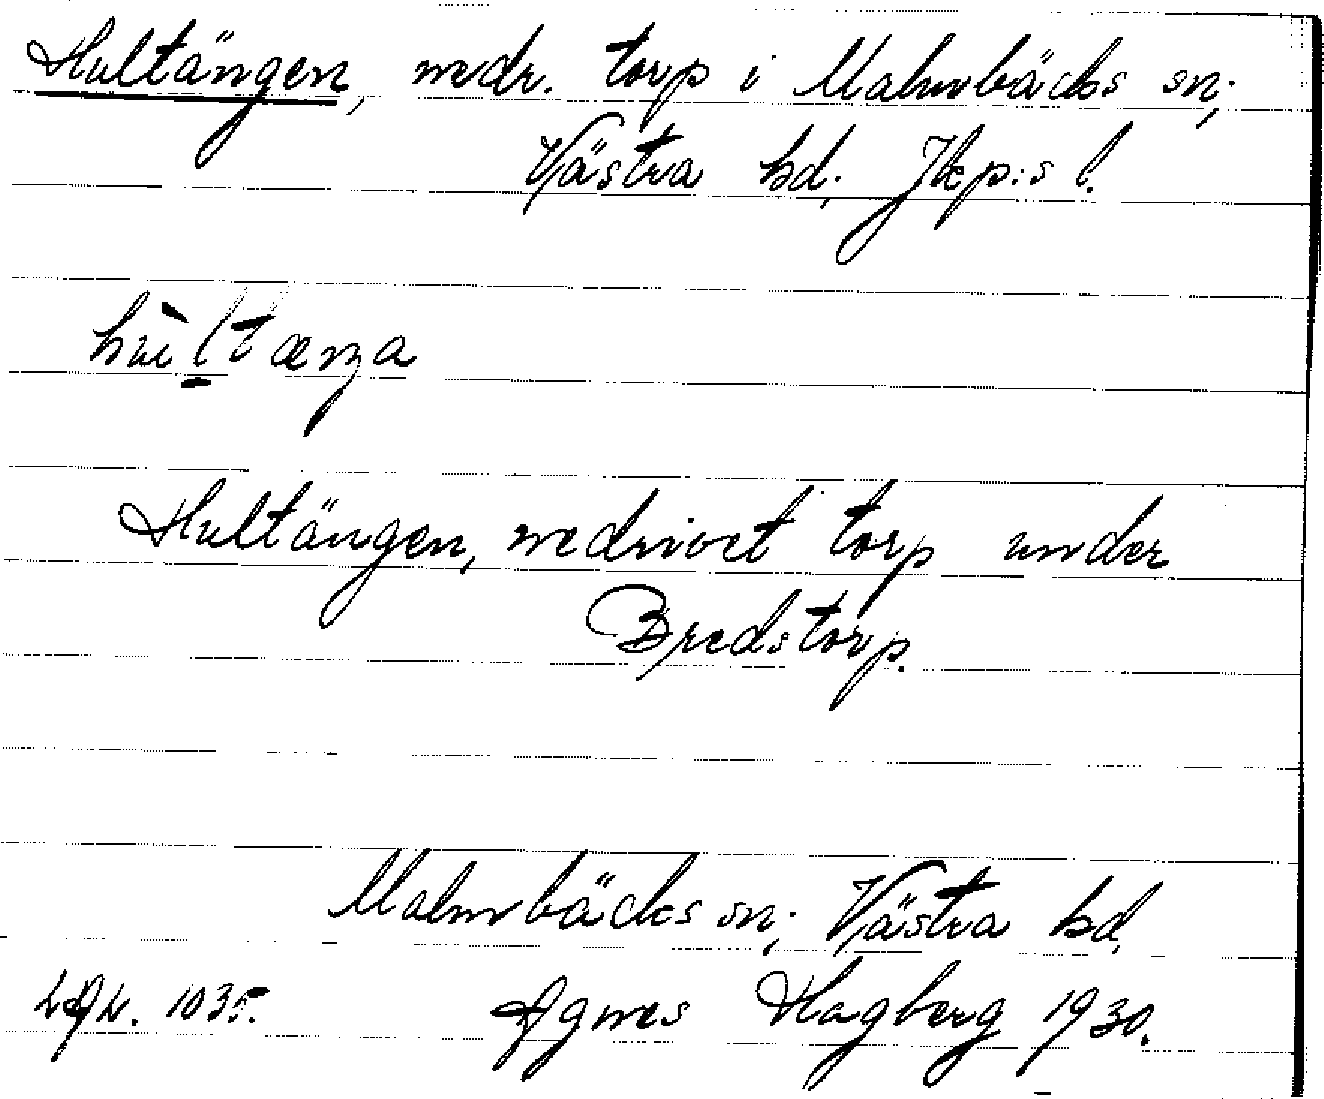 Hultängen, nedr. torp i Malmbäcks sn;
Västra hd; Jkp:s l.
Hultängen, nedrivet torp under
Bredstorp.
Malmbäcks sn; Västra hd,
1035. Agnes Hagberg 1930.